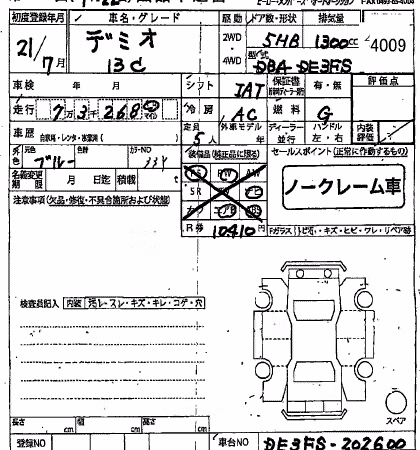 初度登録年月 車名・グレード 駆動 ドア数・形状 排気量
21/7月 デミオ 13C 2WD 4WD 5HB 1300cc 4009
型式 DBA-DE3FS
車検 年 月 シフト IAT 保証書 有・無 評価点
走行 7万3千268 冷房 AC 燃料 G
車歴 自家用・レンタ・営業用( ) 定員 5人 外装モデル 年 ディーラー 並行 ハンドル 左・右 内装評価
元色 ブルー 色替 カラーNO 装備品(純正品に限る) セールスポイント(正常に作動するもの)
名義変更期限 月 日迄 積載 t SR AW ノークレーム車
注意事項(欠品・修復・不具合箇所および状態)
R券 10410円 Fガラス トビ石・キズ・ヒビ・ワレ・リペア跡
検査員記入 内装 汚レ・スレ・キズ・キレ・コゲ・穴
スペア
長さ cm 幅 cm 高さ cm
登録NO 車台NO DE3FS-202600